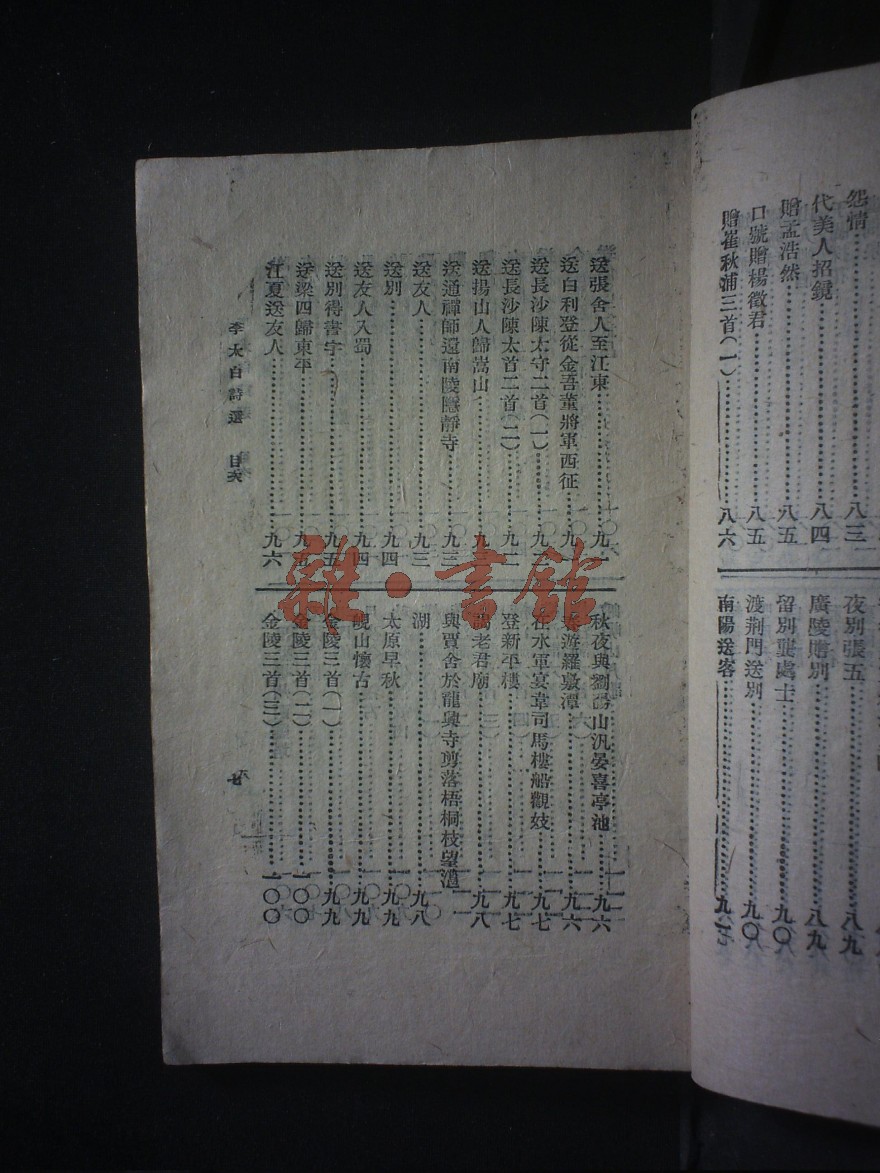 怨情……八三
代美人招鏡……八四
贈孟浩然……八五
口號贈楊徵君……八五
贈崔秋浦三首(一)……八六
夜別張五……八九
廣陵贈別……八九
留別龔處士……九〇
渡荆門送別……九〇
南陽送客……九一
送張舍人至江東……九一
送白利登從金吾董將軍西征……九
送長沙陳太守二首(一)……九二
送長沙陳太首二首(二)……九二
送揚山人歸嵩山……九
送通禪師還南陵隱靜寺……九三
送友人……九三
送別……九四
送友人入蜀……九四
送別得書字……九五
送梁四歸東平……九五
江夏送友人……九六
秋夜與劉碭山汎晏喜亭池……九六
春游羅敷潭……九六
在水軍宴韋司馬樓船觀妓……九七
登新平樓……九七
謁老君廟……九八
與賈舍於龍興寺剪落梧桐枝望㴩
湖……九八
太原早秋……九九
峴山懷古……九九
金陵三首(一)……九九
金陵三首(二)……一〇〇
金陵三首(三)……一〇〇
李太白詩選 目次
七
雜·書館